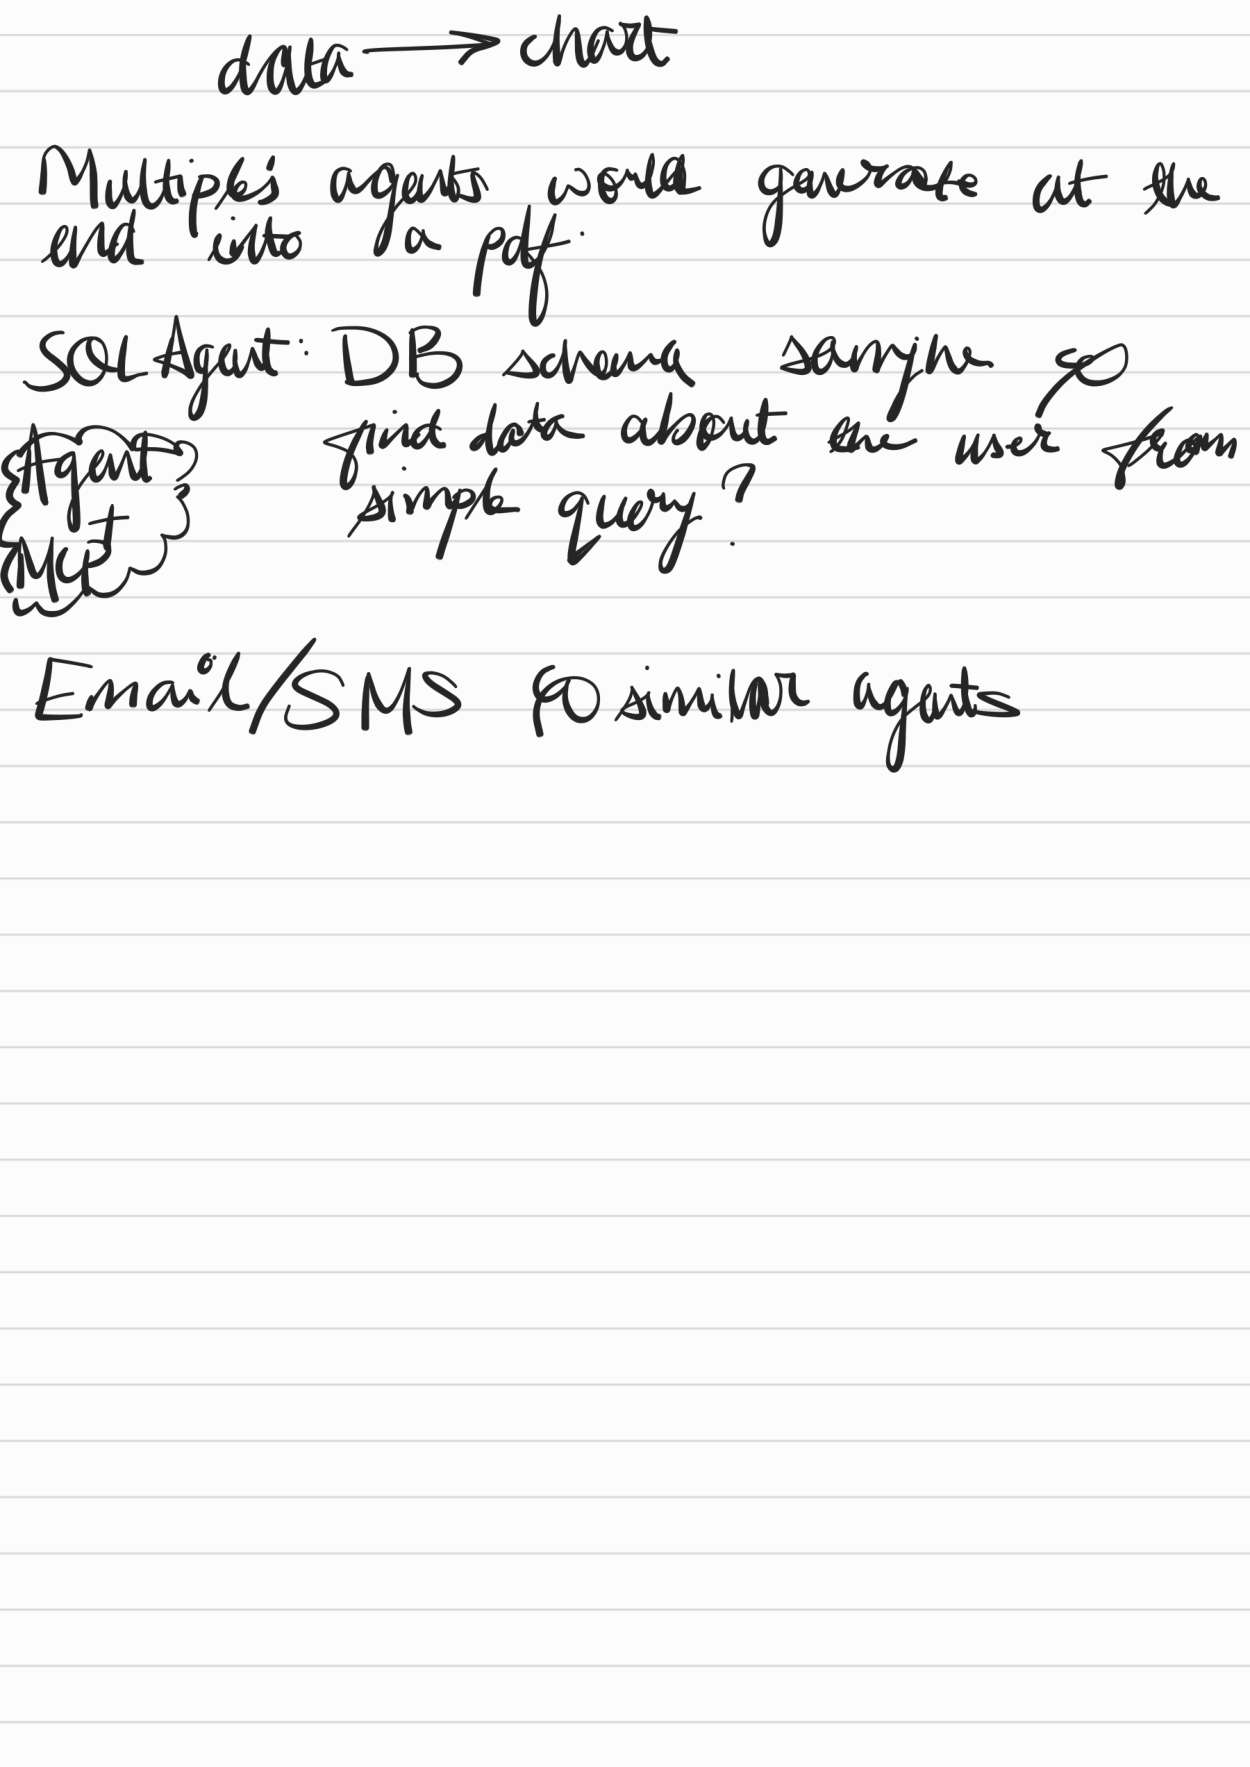 data → chart
Multiple's agents would generate at the
end into a pdf.
SQL Agent: DB schema
find data about the user from
simple query?
Agent
+
MCP
Email/SMS similar agents